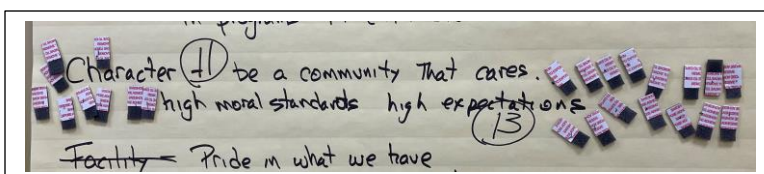 in programs
Character +1 be a community That cares.
high moral standards high expectations
13
Facility Pride in what we have